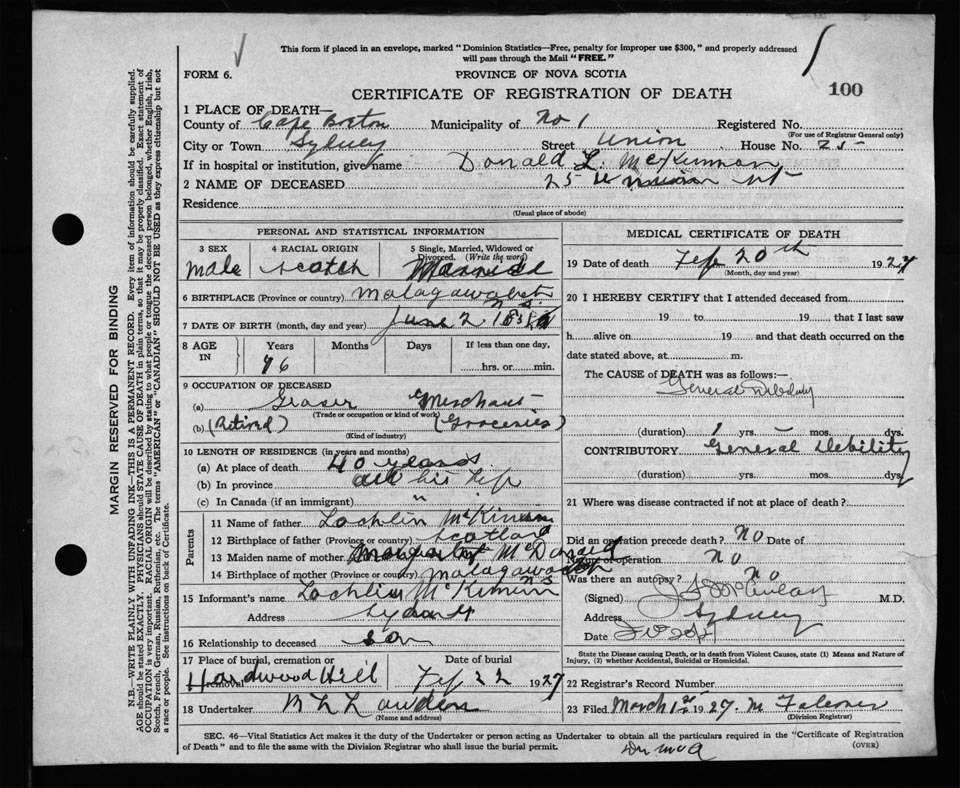 This form if placed in an envelope, marked "Dominion Statistics—Free, penalty for improper use $300," and properly addressed
will pass through the Mail "FREE."
FORM 6.
PROVINCE OF NOVA SCOTIA
CERTIFICATE OF REGISTRATION OF DEATH
100
1 PLACE OF DEATH—
County of Cape Breton Municipality of No 1 Registered No.
(For use of Registrar General only)
City or Town Sydney Street Union House No. 25
If in hospital or institution, give name Donald L. McKinnon
2 NAME OF DECEASED 25 Union St
Residence
(Usual place of abode)
PERSONAL AND STATISTICAL INFORMATION
3 SEX
male
4 RACIAL ORIGIN
Scotch
5 Single, Married, Widowed or
Divorced. (Write the word)
Married
6 BIRTHPLACE (Province or country) Malagawatch
N.S.
7 DATE OF BIRTH (month, day and year) June 2
8 AGE IN
Years Months Days If less than one day,
76 hrs. or min.
9 OCCUPATION OF DECEASED
(a) Merchant
(Trade or occupation or kind of work)
(b) (Retired) (Groceries)
(Kind of industry)
10 LENGTH OF RESIDENCE (in years and months)
(a) At place of death 40 years
(b) In province all his life
(c) In Canada (if an immigrant) "
Parents
11 Name of father Lochlin McKinnon
12 Birthplace of father (Province or country) Scotland
13 Maiden name of mother Margaret McDonald
14 Birthplace of mother (Province or country) Malagawatch
N S
15 Informant's name Lochlin McKinnon
Address Sydney
16 Relationship to deceased son
17 Place of burial, cremation or
removal Hardwood Hill
Date of burial
Feb 22 1927
18 Undertaker
(Name and address)
MEDICAL CERTIFICATE OF DEATH
19 Date of death Feb 20th 1927
(Month, day and year)
20 I HEREBY CERTIFY that I attended deceased from
19 to 19 that I last saw
h alive on 19 and that death occurred on the
date stated above, at m.
The CAUSE of DEATH was as follows:
General Debility
(duration) 1 yrs. mos. dys.
CONTRIBUTORY General Debility
(duration) yrs. mos. dys.
21 Where was disease contracted if not at place of death?
Did an operation precede death? No Date of
Nature of operation No
Was there an autopsy? No
(Signed) M.D.
Address Sydney
Date
State the Disease causing Death, or in death from Violent Causes, state (1) Means and Nature of
Injury, (2) whether Accidental, Suicidal or Homicidal.
22 Registrar's Record Number
23 Filed March 1st 1927 M Falconer
(Division Registrar)
SEC. 46—Vital Statistics Act makes it the duty of the Undertaker or person acting as Undertaker to obtain all the particulars required in the "Certificate of Registration
of Death" and to file the same with the Division Registrar who shall issue the burial permit.
(OVER)
MARGIN RESERVED FOR BINDING
N.B.—WRITE PLAINLY, WITH UNFADING INK—THIS IS A PERMANENT RECORD. Every item of information should be carefully supplied.
AGE should be stated EXACTLY. PHYSICIANS should STATE CAUSE OF DEATH in plain terms, so that it may be properly classified. Exact statement of
OCCUPATION is very important. RACIAL ORIGIN will be described by stating to what people or tongue the deceased person belonged, whether English, Irish,
Scotch, French, German, Russian, Ruthenian, etc. The terms "AMERICAN" or "CANADIAN" SHOULD NOT BE USED as they express citizenship but not
a race or people. See instructions on back of Certificate.